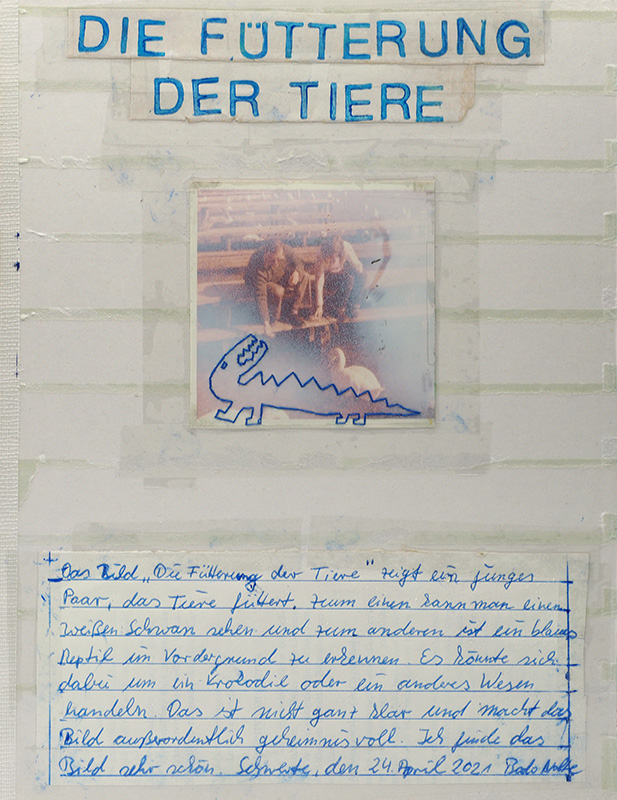 DIE FÜTTERUNG
DER TIERE
Das Bild „Die Fütterung der Tiere" zeigt ein junges
Paar, das Tiere füttert. Zum einen kann man einen
weißen Schwan sehen und zum anderen ist ein blaues
Reptil im Vordergrund zu erkennen. Es könnte sich
dabei um ein Krokodil oder ein anderes Wesen
handeln. Das ist nicht ganz klar und macht das
Bild außerordentlich geheimnisvoll. Ich finde das
Bild sehr schön. Schwerte, den 24. April 2021 Bodo